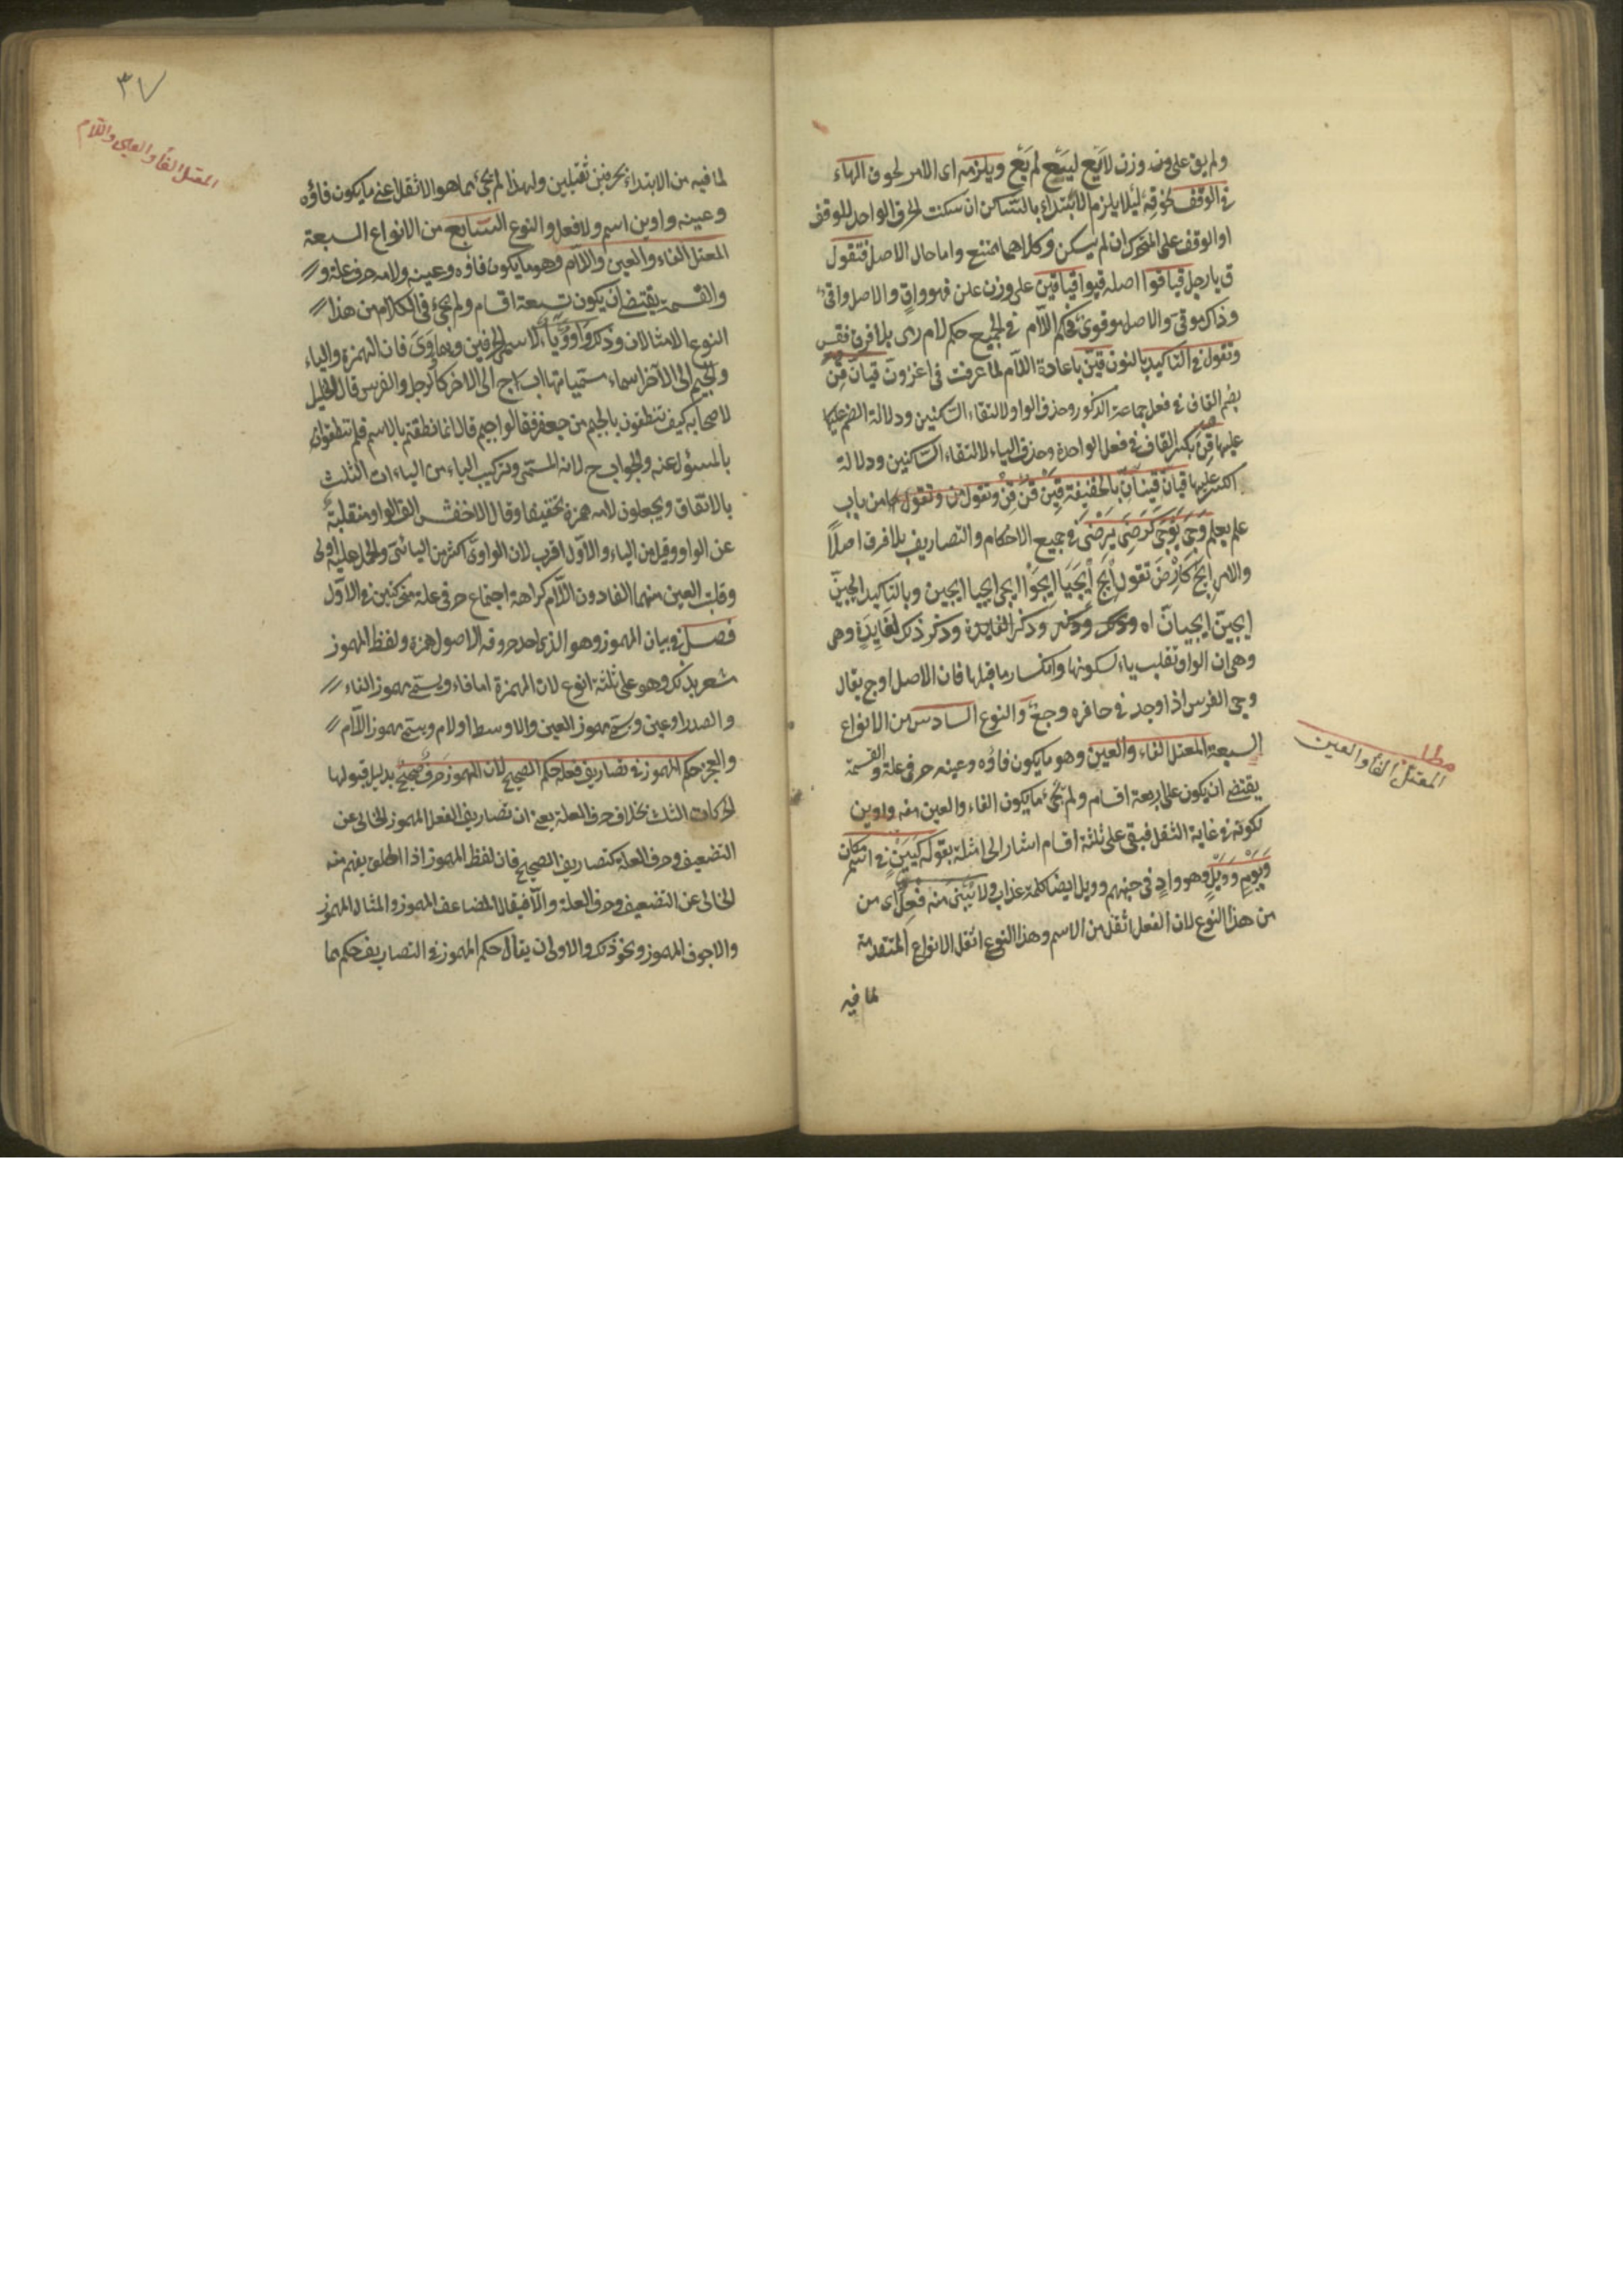 ولم يق على وزن لا يع ليع لم يع ويلزمه اى الامر لحوق الهاء
فى الوقف نحو قه لئلا يلزم الابتداء بالساكن ان سكنت الحرف الواحد للوقف
او الوقف على المتحرك ان لم يسكن وكلاهما ممتنع واما حال الاصل فتقول
ق يا رجل قيا قوا اصله قيوا قى قيا قين على وزن علن فهو واق والاصل واقى
وذاك موقى والاصل موقوى فحكم اللام فى الجميع حكم لام رمى بلا فرق فقس
وتقول فى التاكيد بالنون قين باعادة اللام لما عرفت فى اغزون قيان قن
بضم القاف فى فعل جماعة الذكور وحذف الواو لالتقاء الساكنين ودلالة الضم عليها
عليها قن بكسر القاف فى فعل الواحدة وحذف الياء لالتقاء الساكنين ودلالة
الكسر عليها قيان قينان بالخفيفة قين قن قن وتقول من وتقول من باب
علم يعلم وجى يوجى كرضى يرضى فى جميع الاحكام والتصاريف بلا فرق اصلا
والامر ايج كارض تقول ايج ايجيا ايجوا ايجى ايجيا ايجين وبالتاكيد ايجين
ايجين ايجيان اه وذكر ذلك لفايدة وهى
وهى ان الواو تقلب ياء لسكونها وانكسار ما قبلها فان الاصل اوج يقال
وجى الفرس اذا وجد فى حافره وجع والنوع السادس من الانواع
السبعة المعتل الفاء والعين وهو ما يكون فاؤه وعينه حرفى علة والقسمة
يقتضى ان يكون على اربعة اقسام ولم يجئ ما يكون الفاء والعين منه واوين
لكونه فى غاية الثقل فبقى على ثلثة اقسام اشار الى امثلة بقوله كيين فى اسم مكان
ويوم وويل وهو واد فى جهنم وويل ايضا كلمة عذاب ولا يبنى منه فعل اى من
من هذا النوع لان الفعل اثقل من الاسم وهذا النوع اثقل الانواع المتقدمة
لما فيه
مطلب
المعتل الفاء والعين
٣٧
المعتل الفاء والعين واللام
لما فيه من الابتداء بحرفين ثقيلين ولهذا لم يجئ مما هو الاثقل اعنى ما يكون فاؤه
وعينه واوين اسم ولا فعل والنوع السابع من الانواع السبعة
المعتل الفاء والعين واللام وهو ما يكون فاؤه وعينه ولامه حرف علة و
والقسمة يقتضى ان يكون تسعة اقسام ولم يجئ فى الكلام من هذا
النوع الا مثالان وذلك واو وياء لاسمى الحرفين وهما و و ى فان الهمزة والياء
والجيم الى الآخر اسماء مسمياتها اب ج الى الآخر كالرجل والفرس قال الخليل
لاصحابه كيف تنطقون بالجيم من جعفر فقالوا جيم قال انما نطقتم بالاسم فلم تنطقوا
بالمسئول عنه والجواب ج لانه المسمى وتركيب الياء من الياءات الثلث
بالاتفاق ويجعلون لامه همزة تخفيفا وقال الاخفش الف الواو منقلبة
عن الواو وقيل من الياء والاول اقرب لان الواوى اكثر من اليائى والحمل عليه اولى
وقلبت العين منهما الفا دون اللام كراهة اجتماع حرفى علة متحركتين فى الاول
فصل فى بيان المهموز وهو الذى احد حروفه الاصول همزة ولفظ المهموز
شعر بذلك وهو على ثلثة انوع لان الهمزة اما فاء ويسمى مهموز الفاء
والصدر او عين ويسمى مهموز العين والاوسط او لام ويسمى مهموز اللام
والعجز حكم المهموز فى تصاريف فعله حكم الصحيح لان المهموز حرف صحيح بدليل قبولها
الحركات الثلث بخلاف حرف العلة يعنى ان تصاريف الفعل المهموز الخالى عن
التضعيف وحرف العلة كتصاريف الصحيح فان لفظ المهموز اذا اطلق يفهم منه
الخالى عن التضعيف وحرف العلة والا فيقال المضاعف المهموز والمثال المهموز
والاجوف المهموز ونحو ذلك والاولى ان يقال حكم المهموز فى التصاريف حكم ما